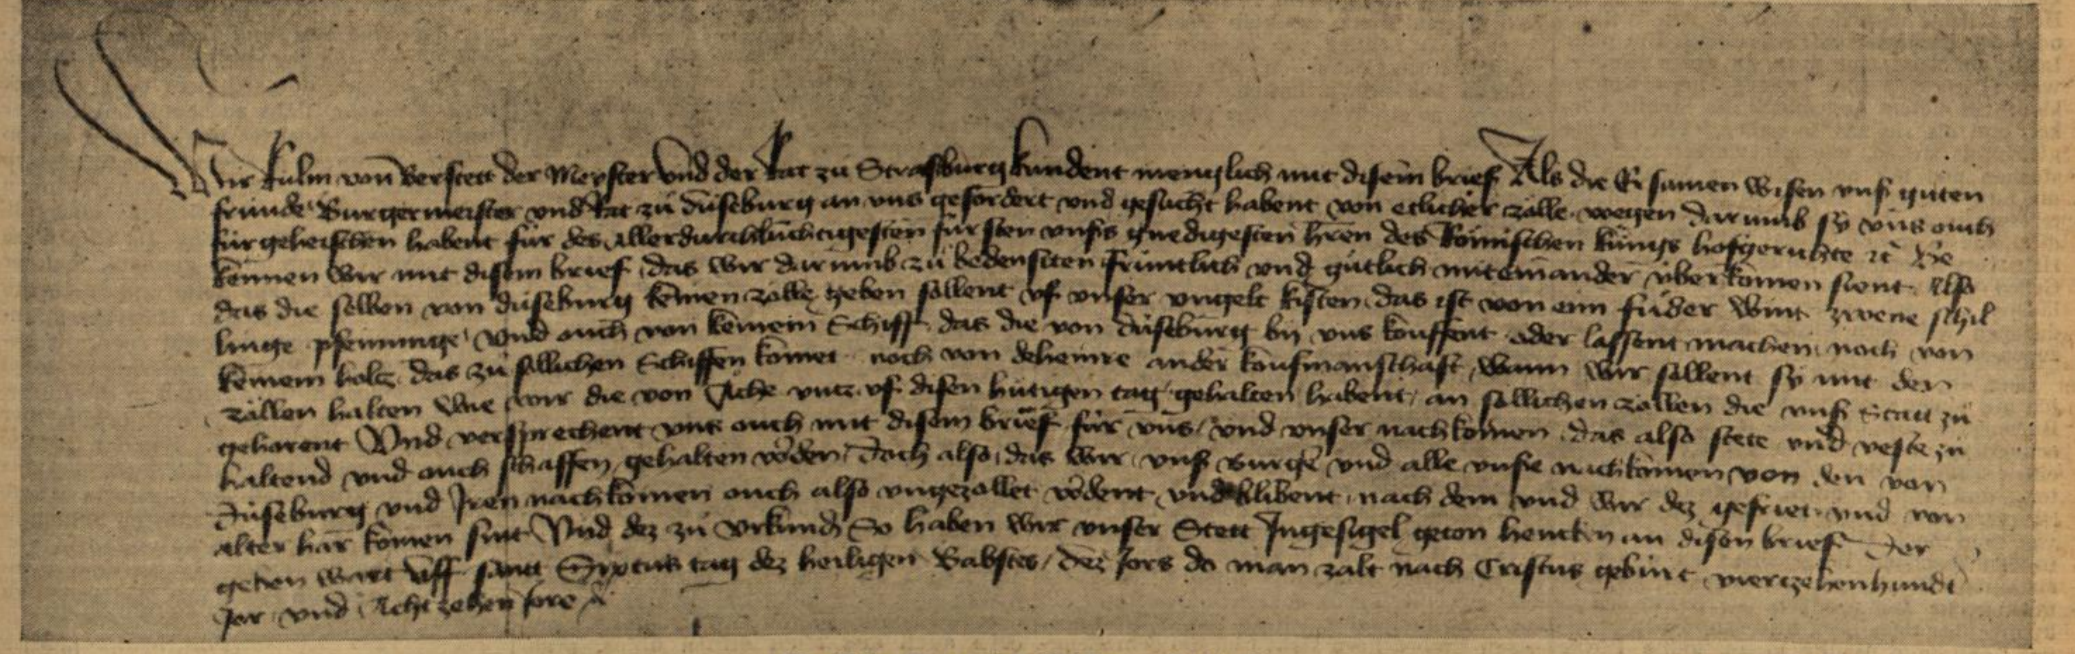 Wir Kulin von Berstett der Meyster Und der Rat zu Strasburg kundent menglich mit disem brief Als die Ersamen Wisen unsr guten
fründe Burgermeister und Rat zü Düseburg an uns gefordert und gesücht habent von etlicher zölle wegen dar umb sy uns ouch
für geheischen habent für des Allerdurchlüchtigesten fürsten unsrs gnedigesten hren des Römischen künigs hofgerichte Be
kennen Wir mit disem brief das wir dar umb zü
 früntlich und gütlich mit einander uberkomen sient Also
das die selben von düseburg keinen zölle geben söllent uf unser ungelt kisten das ist von eim füder Wins zwene schil
linge pfenninge Und ouch von keinem Schiff das die von düseburg by uns kouffent oder lassent machen noch von
keinem holtz das zü söllichen Schiffen kömet noch von deheinre ander koufmanschaft Wann Wir söllent sy mit den
zöllen halten Wie wir die von Ache untz uf disen hütigen tag gehalten habent an söllichen zöllen die unsr Statt zü
gehörent Und versprechent uns ouch mit disem brief für uns und unser nachkomen das also stete und veste zü
haltend und ouch schaffen gehalten werden doch also das Wir unsr Burger und alle unsre nachkomen von den von
Düseburg und Iren nachkomen ouch also ungezollet werdent und blibent nach dem und Wir dez gefriet und von
alter har komen sint Und dez zü Urkund So haben Wir unser Stett Ingesigel geton hencken an disen brief Der
geben wart Uff sant Sixtus tag dez heiligen Babstes dez Jors do man zalt nach Cristus gebürt viertzehenhundt
Jor und Achtzehen Jore